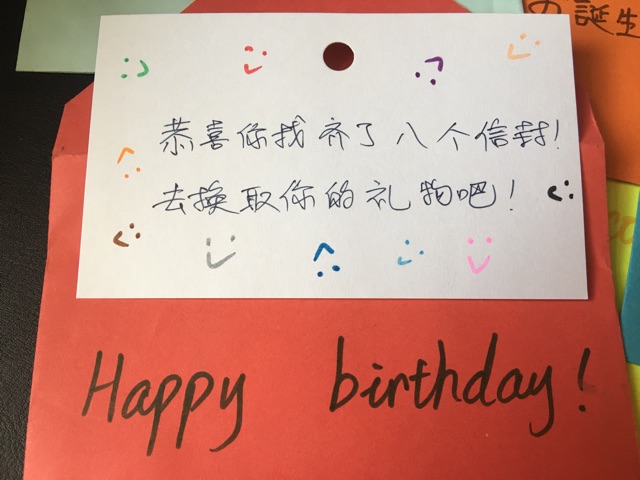 の誕生
恭喜你找齐了八个信封!
去换取你的礼物吧!
Happy birthday!